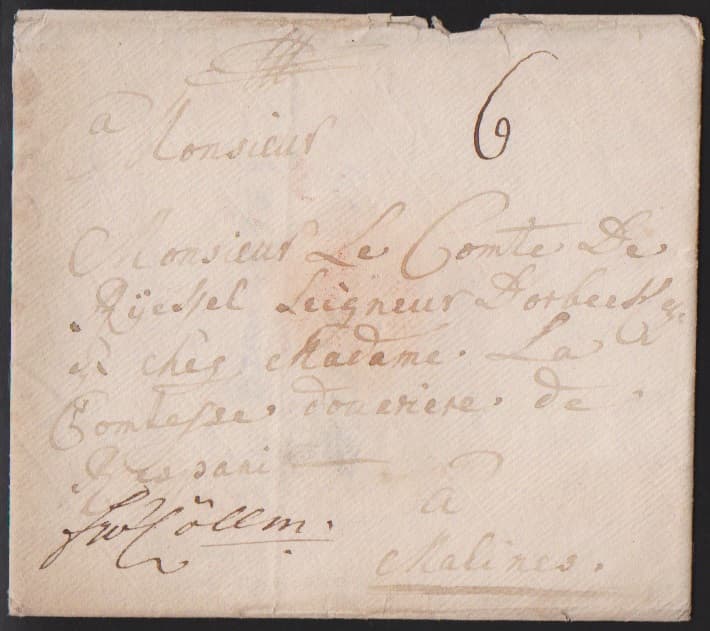 6
a Monsieur
Monsieur Le Comte De
Rÿessel Seigneur Dorbeeck
& chéz Madame. La
Comtesse doueriere de
Respani
a
Malines.